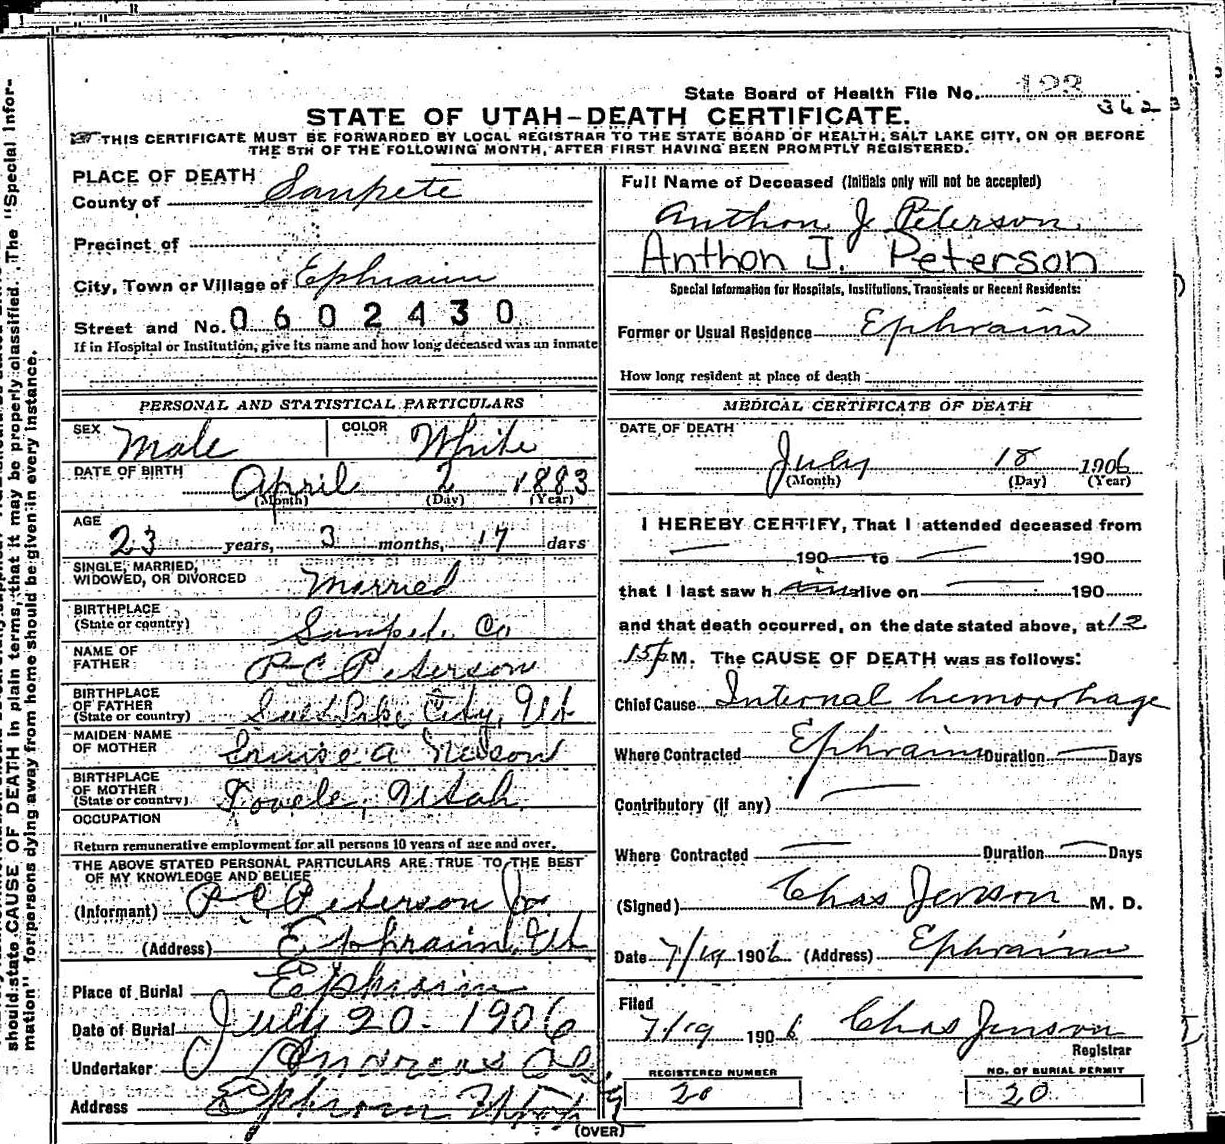 State Board of Health File No. 123
3423
STATE OF UTAH-DEATH CERTIFICATE.
THIS CERTIFICATE MUST BE FORWARDED BY LOCAL REGISTRAR TO THE STATE BOARD OF HEALTH, SALT LAKE CITY, ON OR BEFORE
THE 5TH OF THE FOLLOWING MONTH, AFTER FIRST HAVING BEEN PROMPTLY REGISTERED.
should state CAUSE OF DEATH in plain terms, that it may be properly classified. The "Special Infor-
mation" for persons dying away from home should be given in every instance.
PLACE OF DEATH
County of Sanpete
Precinct of
City, Town or Village of Ephraim
Street and No. 0602430
If in Hospital or Institution, give its name and how long deceased was an inmate
PERSONAL AND STATISTICAL PARTICULARS
SEX Male COLOR White
DATE OF BIRTH April 2 1883
(Month) (Day) (Year)
AGE
23 years, 3 months, 17 days
SINGLE, MARRIED,
WIDOWED, OR DIVORCED Married
BIRTHPLACE
(State or country) Sanpete Co
NAME OF
FATHER P C Peterson
BIRTHPLACE
OF FATHER
(State or country) Salt Lake City, Ut
MAIDEN NAME
OF MOTHER Louise A Nelson
BIRTHPLACE
OF MOTHER
(State or country) Tooele, Utah
OCCUPATION
Return remunerative employment for all persons 10 years of age and over.
THE ABOVE STATED PERSONAL PARTICULARS ARE TRUE TO THE BEST
OF MY KNOWLEDGE AND BELIEF
(Informant) P C Peterson Jr.
(Address) Ephraim, Ut
Place of Burial Ephraim
Date of Burial July 20 - 1906
Undertaker Andreas
Address Ephraim Utah
Full Name of Deceased (Initials only will not be accepted)
Anthon J Peterson
Anthon J. Peterson
Special Information for Hospitals, Institutions, Transients or Recent Residents:
Former or Usual Residence Ephraim
How long resident at place of death
MEDICAL CERTIFICATE OF DEATH
DATE OF DEATH
July 18 1906
(Month) (Day) (Year)
I HEREBY CERTIFY, That I attended deceased from
190 to 190
that I last saw h alive on 190
and that death occurred, on the date stated above, at 12
15 p M. The CAUSE OF DEATH was as follows:
Chief Cause Internal hemorrhage
Where Contracted Ephraim Duration Days
Contributory (if any)
Where Contracted Duration Days
(Signed) Chas Jenson M. D.
Date 7/19 1906 (Address) Ephraim
Filed
7/19 1906 Chas Jenson
Registrar
REGISTERED NUMBER
20
NO. OF BURIAL PERMIT
20
(OVER)